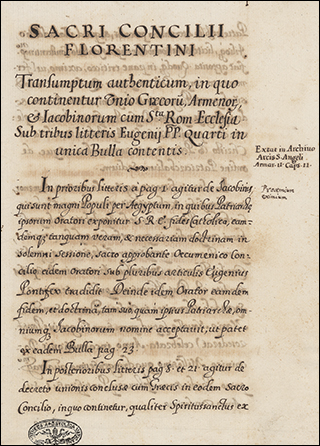 SACRI CONCILII
FLORENTINI
Transumptum authenticum, in quo
continentur Unio Græcorũ, Armenor,
& Iacobinorum cum Sta Rom Ecclesia
Sub tribus litteris Eugenij PP. Quarti in
unica Bulla contentis.
Extat in Archivo
Arcis S. Angeli
In prioribus litteris a pag 1 agitur de Iacobinis,
qui sunt magni Populi per Ægyptum, in quibus Patriarchæ
ipsorum Oratori exponitur S. R. E. fides Catholica, eam
demq; tanquam veram, & necessariam doctrinam in
solemni sessione, Sacro approbante Oecumenico Con
cilio eidem Oratori Sub pluribus articulis Eugenius
Pontifex tradidit. Deinde idem Orator eamdem
fidem, et doctrinam, tam suo, quam ipsius Patriarchæ, om
niumq; Iacobinorum nomine acceptavit, ut patet
ex eadem Bulla pag 23.
In posterioribus litteris pag 5 et 21 agitur de
decreto unionis conclusæ cum Græcis in eodem Sacro
Concilio, in quo continetur, qualiter Spiritus Sanctus ex